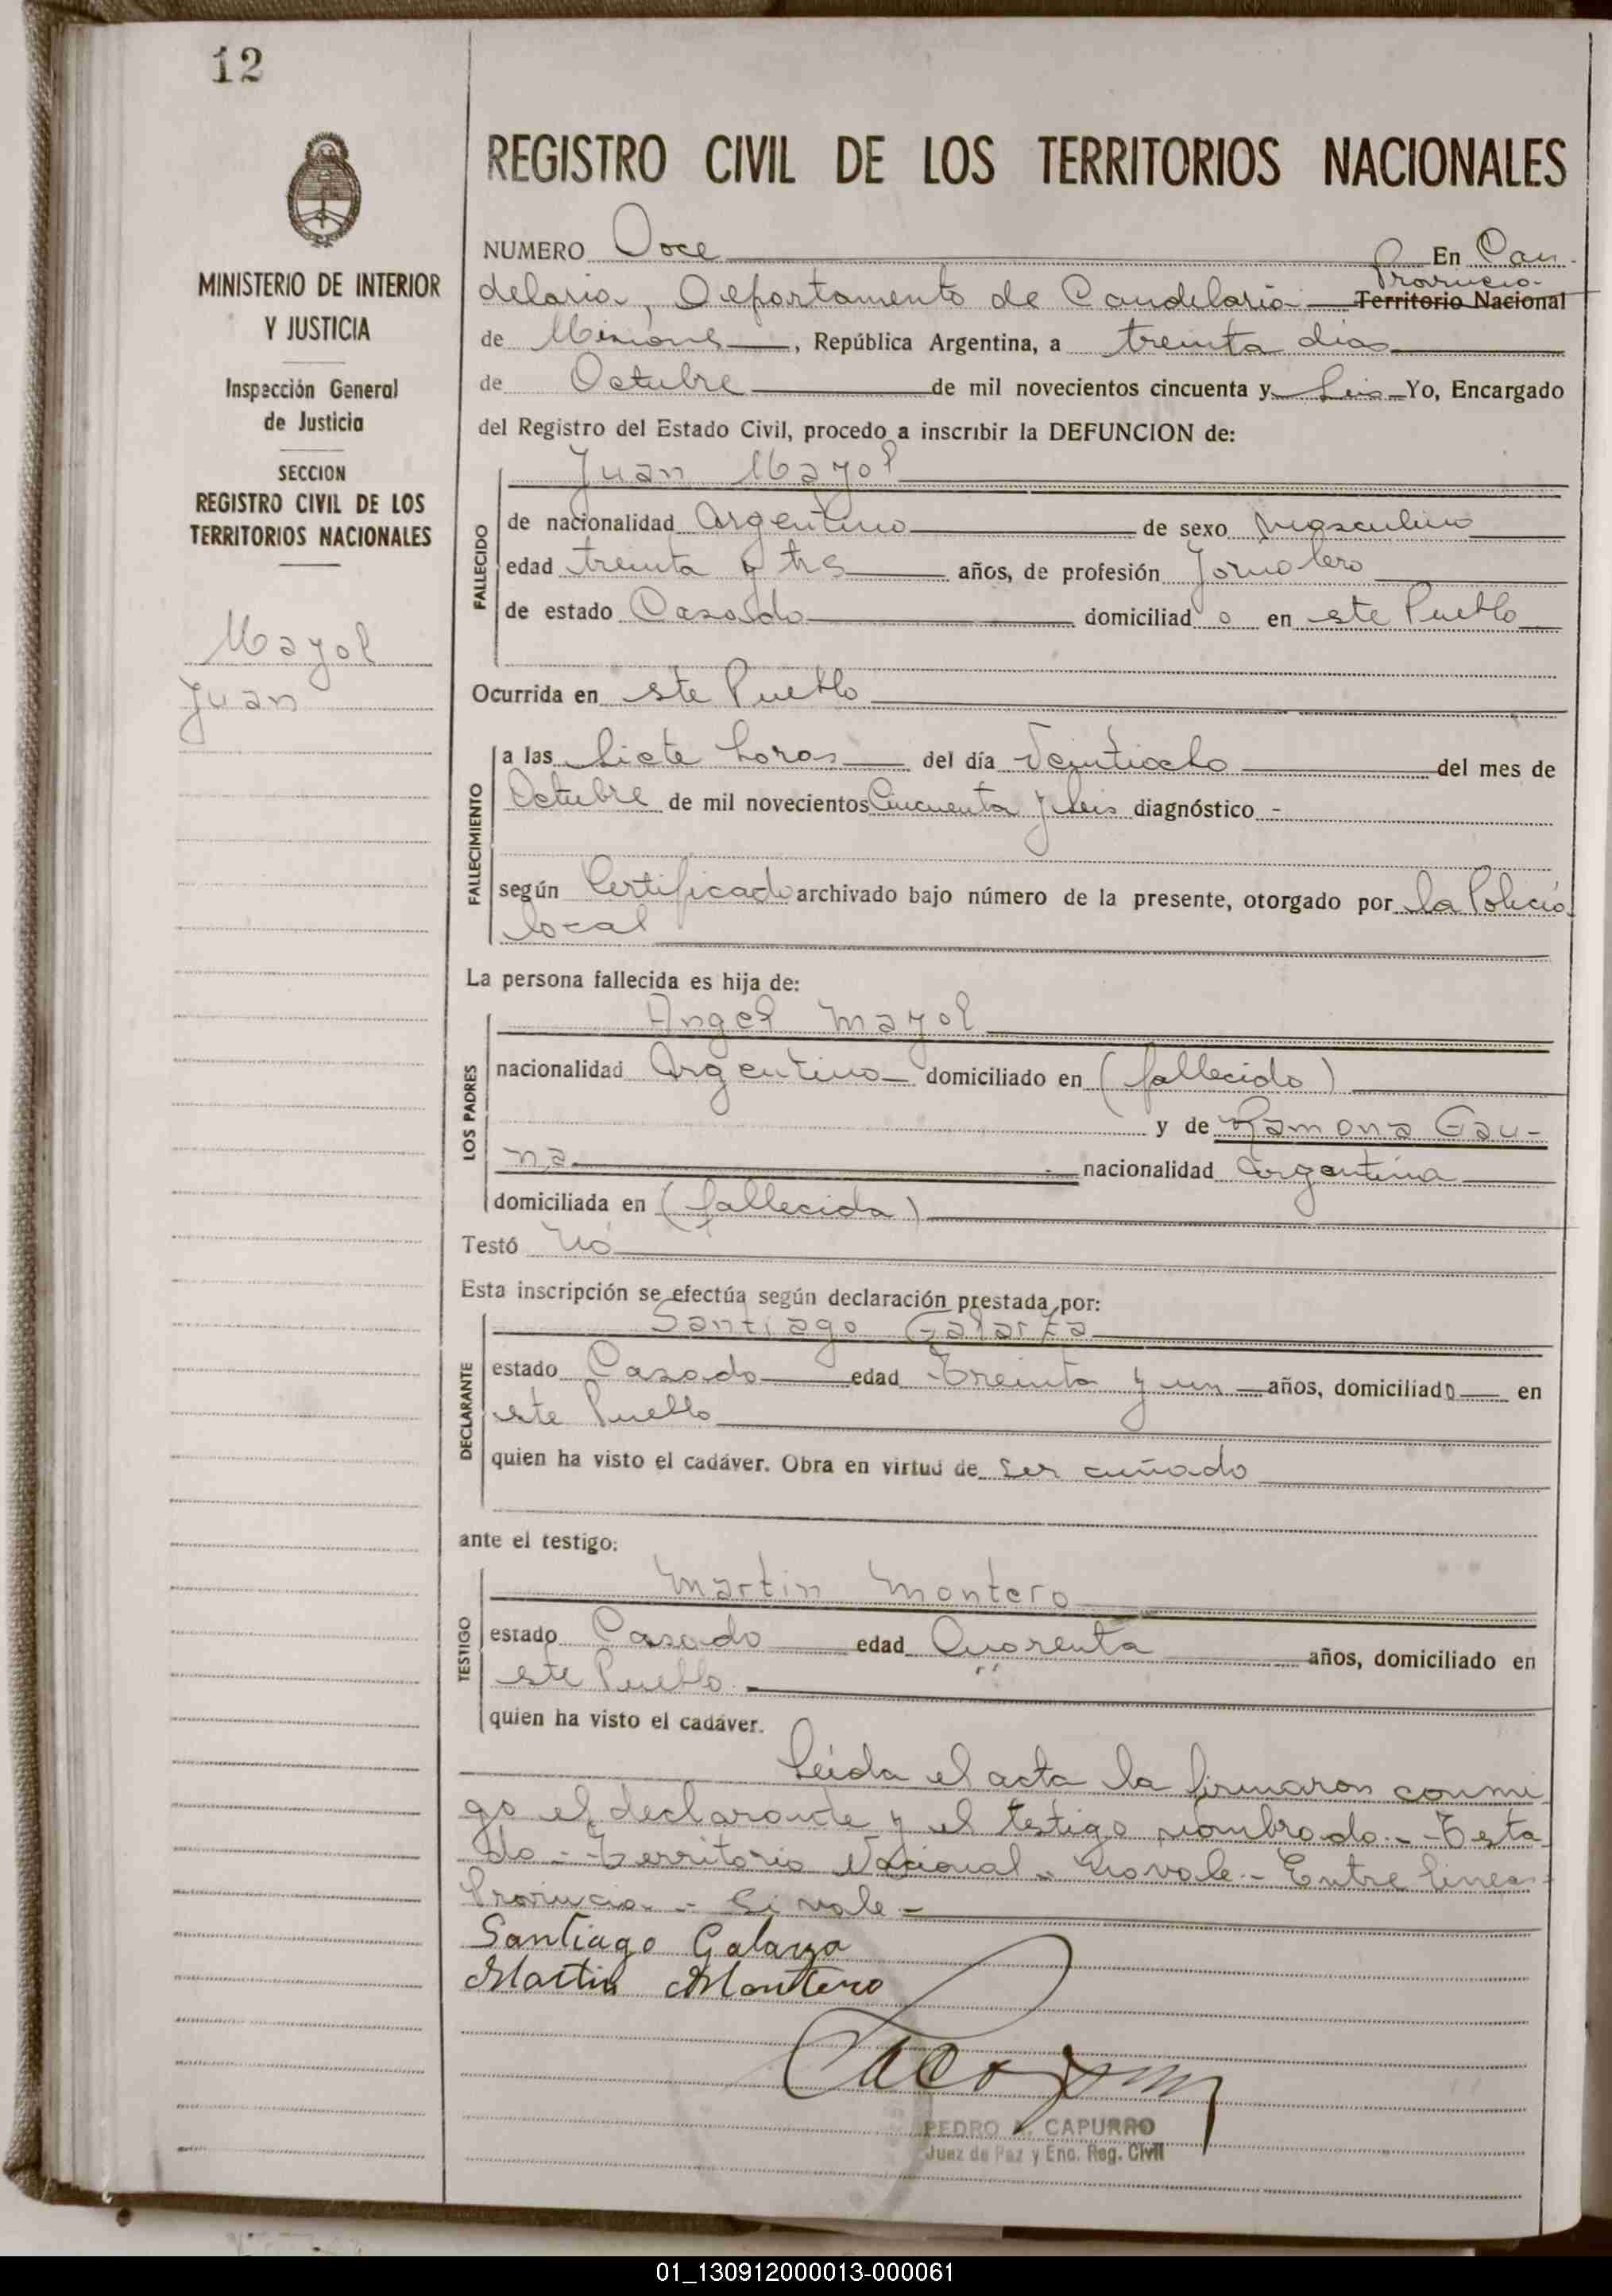 12
MINISTERIO DE INTERIOR
Y JUSTICIA
Inspección General
de Justicia
SECCION
REGISTRO CIVIL DE LOS
TERRITORIOS NACIONALES
Mayol
Juan
REGISTRO CIVIL DE LOS TERRITORIOS NACIONALES
NUMERO Doce En Can-
delaria, Departamento de Candelaria Provincia Territorio Nacional
de Misiones, República Argentina, a treinta dias
de Octubre de mil novecientos cincuenta y Seis Yo, Encargado
del Registro del Estado Civil, procedo a inscribir la DEFUNCION de:
Juan Mayol
FALLECIDO
de nacionalidad Argentino de sexo Masculino
edad treinta y tres años, de profesión Jornalero
de estado Casado domiciliado en este Pueblo
Ocurrida en este Pueblo
FALLECIMIENTO
a las Siete horas del día Veintiocho del mes de
Octubre de mil novecientos Cincuenta y Seis diagnóstico -
según Certificado archivado bajo número de la presente, otorgado por la Policia
local
La persona fallecida es hija de:
LOS PADRES
Angel Mayol
nacionalidad Argentino domiciliado en (fallecido)
y de Ramona Gau-
na nacionalidad Argentina
domiciliada en (fallecida)
Testó No
Esta inscripción se efectúa según declaración prestada por:
DECLARANTE
Santiago Galarza
estado Casado edad Treinta y un años, domiciliado en
este Pueblo
quien ha visto el cadáver. Obra en virtud de ser cuñado
ante el testigo:
TESTIGO
Martin Montero
estado Casado edad Cuarenta años, domiciliado en
este Pueblo
quien ha visto el cadáver.
Leida el acta la firmaron conmi-
go el declarante y el testigo nombrado.- Testa-
do - Territorio Nacional - No vale.- Entre lineas:
Provincia - Si vale -
Santiago Galarza
Martin Montero
PEDRO A. CAPURRO
Juez de Paz y Enc. Reg. Civil
01_130912000013-000061